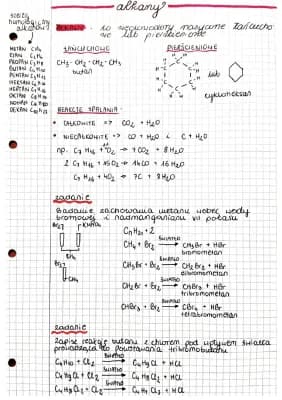 alkany
ALKANY - to węglowodory nasycone łańcuchowe lub pierścieniowe
szereg homologiczny alkanów
METAN CH4
ETAN C2H6
PROPAN C3H8
BUTAN C4H10
PENTAN C5H12
HEKSAN C6H14
HEPTAN C7H16
OKTAN C8H18
NONAN C9H20
DEKAN C10H22
ŁAŃCUCHOWE
CH3-CH2-CH2-CH3
butan
PIERŚCIENIOWE
lub
cykloheksan
REAKCJE SPALANIA
• CAŁKOWITE => CO2 + H2O
• NIECAŁKOWITE => CO + H2O i C + H2O
np. C7H16 + 11O2 → 7CO2 + 8H2O
2 C7H16 + 15O2 → 14CO + 16H2O
C7H16 + 4O2 → 7C + 8H2O
zadanie
Badanie zachowania metanu wobec wody
bromowej i nadmanganianu VII potasu
Br2 KMnO4
CH4
Br2
CnH2n+2
CH4 + Br2 ŚWIATŁO → CH3Br + HBr
bromometan
CH3Br + Br2 ŚWIATŁO → CH2Br2 + HBr
dibromometan
CH2Br + Br2 ŚWIATŁO → CHBr3 + HBr
tribromometan
CHBr3 + Br2 ŚWIATŁO → CBr4 + HBr
tetrabromometan
zadanie
Zapisz reakcję butanu z chlorem pod wpływem światła
prowadzącą do powstawania
C4H10 + Cl2 ŚWIATŁO → C4H9Cl + HCl
C4H9Cl + Cl2 ŚWIATŁO → C4H8Cl2 + HCl
C4H8Cl2 + Cl2 ŚWIATŁO → C4H7Cl3 + HCl